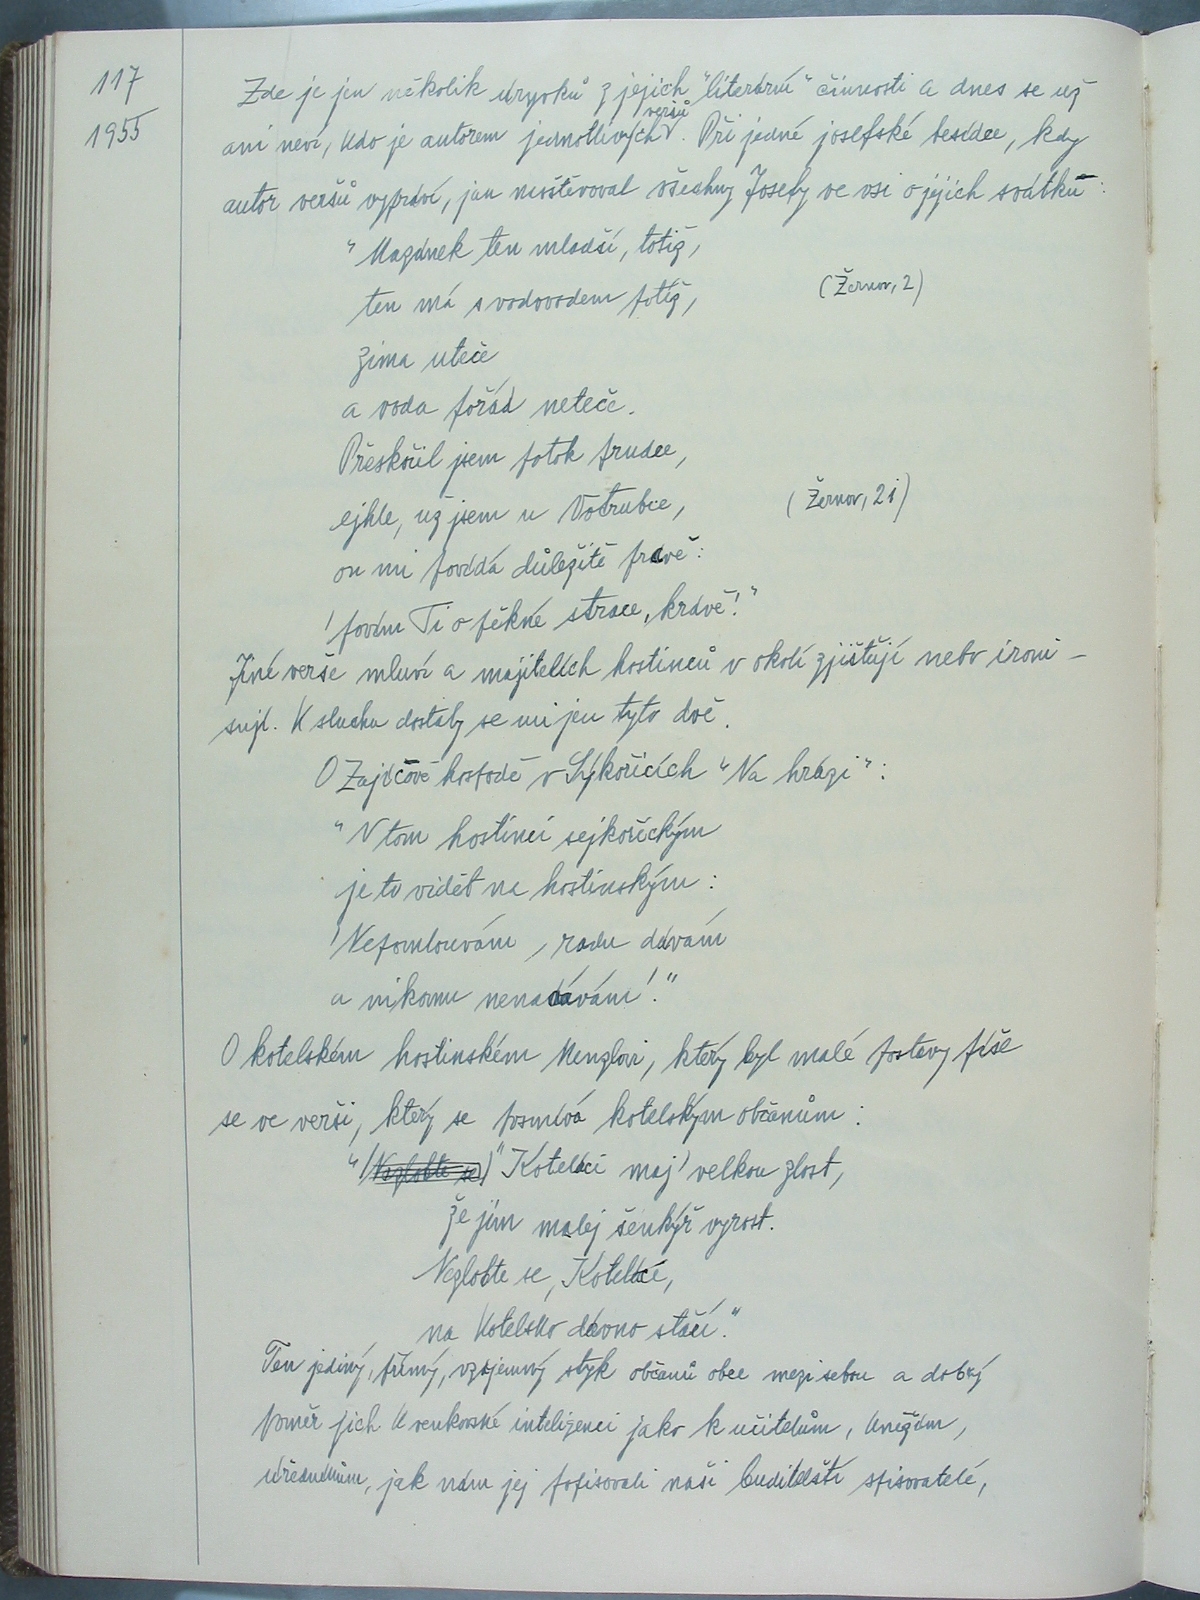 117
1955
Zde je jen několik úryvků z jejich "literární" činnosti a dnes se už
ani neví, kdo je autorem jednotlivých veršů. Při jedné josefské besídce, kdy
autor veršů vypráví, jak navštěvoval všechny Josefy ve vsi o jejich svátku:
"Mazánek ten mladší, totiž,
ten má s vodovodem potíž, (Žernov, 2)
zima uteče
a voda pořád neteče.
Přeskočil jsem potok prudce,
ejhle, už jsem u Votrubce, (Žernov, 21)
on mi povídá důležitě právě:
'povím Ti o pěkné strace, krávě!'"
Jiné verše mluví a majitelích hostinců v okolí zjišťují nebo ironi-
sují. K sluchu dostaly se mi jen tyto dvě.
O Zajíčově hospodě v Sýkořicích "Na hrázi":
"V tom hostinci sejkořickým
je to vidět na hostinským:
'Nepomlouvám, radu dávám
a nikomu nenadávám'."
O kotelském hostinském Menzlovi, který byl malé postavy píše
se ve verši, který se posmívá kotelským občanům:
"(Nezlobte se)" Koteláci maj' velkou zlost,
že jim malej šenkýř vyrost.
Nezlobte se, Koteláci,
na Kotelsko dávno stačí."
Ten jediný, přímý, vzájemný styk občanů obce mezi sebou a dobrý
poměr jich k venkovské inteligenci jako k učitelům, kněžím,
úředníkům, jak nám jej popisovali naši buditelští spisovatelé,